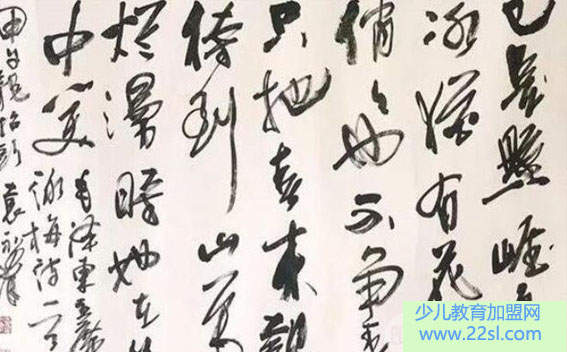 已是悬崖
冰犹有花
俏也不争春
只把春来报
待到山花
烂漫时她在丛
中笑
毛泽东主席
咏梅诗一
甲午
少儿教育加盟网
www.22sl.com